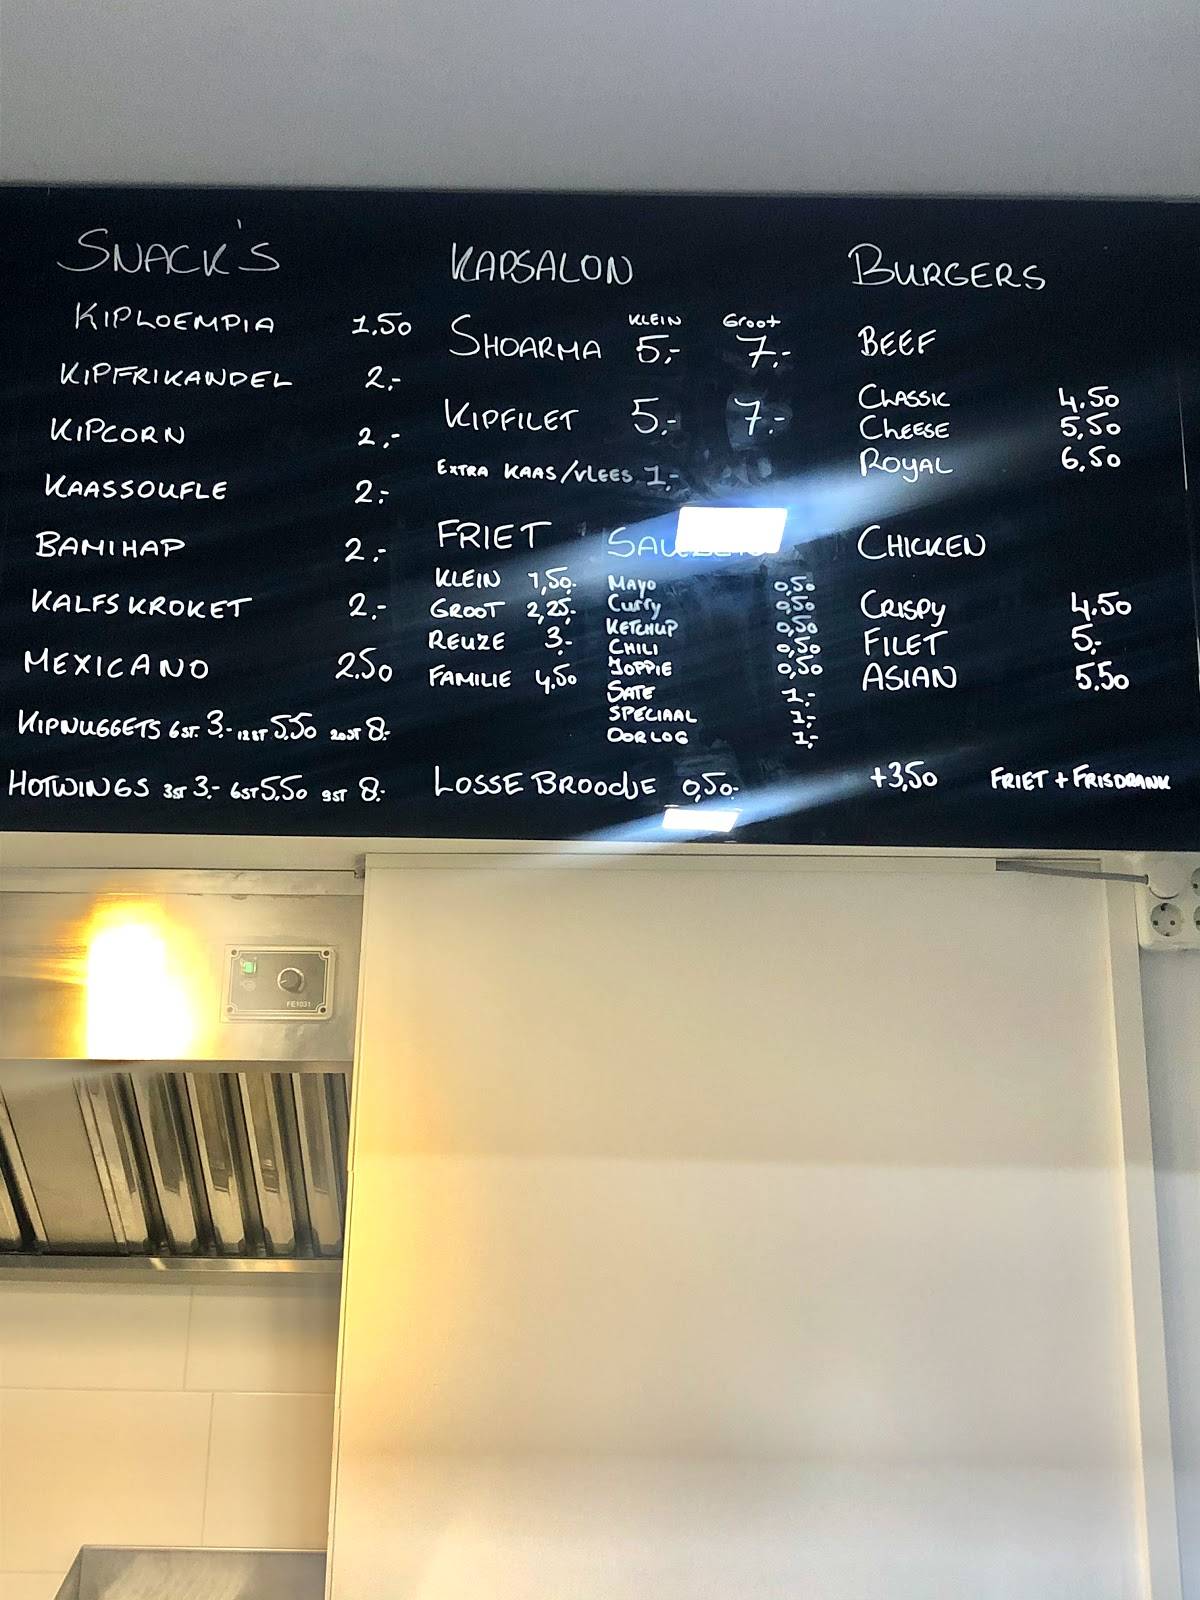 SNACK'S
KIPLOEMPIA 1,50
KIPFRIKANDEL 2,-
KIPCORN 2,-
KAASSOUFLE 2,-
BAMIHAP 2,-
KALFSKROKET 2,-
MEXICANO 2.50
KIPNUGGETS 6ST 3.- 12ST 5,50 20ST 8.-
HOTWINGS 3ST 3.- 6ST 5,50 9ST 8.-
KAPSALON
KLEIN Groot
SHOARMA 5,- 7.-
KIPFILET 5,- 7.-
EXTRA KAAS/VLEES 1,-
FRIET
KLEIN 1,50.-
GROOT 2,25.-
REUZE 3.-
FAMILIE 4,50
Mayo 0,50
Curry 0,50
KETCHUP 0,50
CHILI 0,50
JOPPIE 0,50
SATE 1,-
SPECIAAL 1,-
OORLOG 1,-
LOSSE BROODJE 0,50.-
BURGERS
BEEF
CLASSIC 4.50
CHEESE 5,50
ROYAL 6,50
CHICKEN
CRISPY 4.50
FILET 5,-
ASIAN 5.50
+3,50 FRIET + FRISDRANK
FE1031